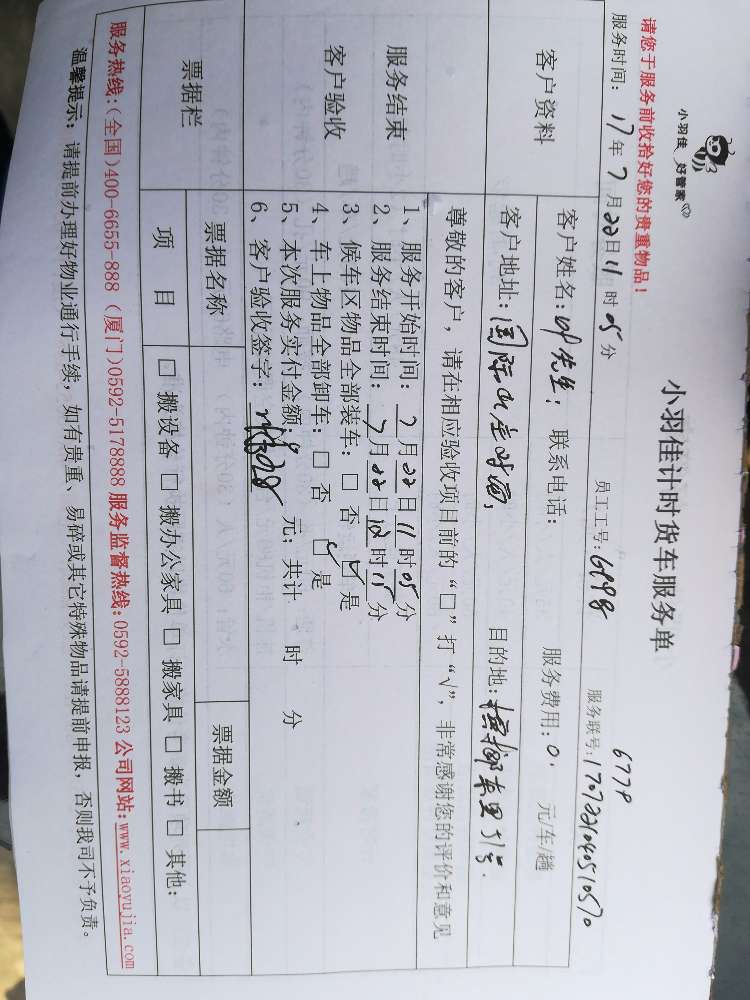 小羽佳 好管家
小羽佳计时货车服务单
6779
请您于服务前收拾好您的贵重物品!
服务时间: 17年7月22日11时05分 员工工号: 6998 服务联号: 170722104051070
客户资料
客户姓名: 先生; 联系电话: 服务费用: 0. 元/车/趟
客户地址: 国际山庄对面, 目的地: 槟榔东里51号.
尊敬的客户,请在相应验收项目前的“□”打“√”,非常感谢您的评价和意见
服务结束
客户验收
1、服务开始时间: 7月22日11时05分
2、服务结束时间: 7月22日12时15分
3、候车区物品全部装车: □ 否 ☑ 是
4、车上物品全部卸车: □ 否 ☑ 是
5、本次服务实付金额: 0 元; 共计 时 分
6、客户验收签字:
票据栏
票据名称 票据金额
项 目 □ 搬设备 □ 搬办公家具 □ 搬家具 □ 搬书 □ 其他:
服务热线:(全国)400-6655-888 (厦门)0592-5178888 服务监督热线:0592-5888123 公司网站:www.xiaoyujia.com
温馨提示: 请提前办理好物业通行手续, 如有贵重、易碎或其它特殊物品请提前申报, 否则我司不予负责。